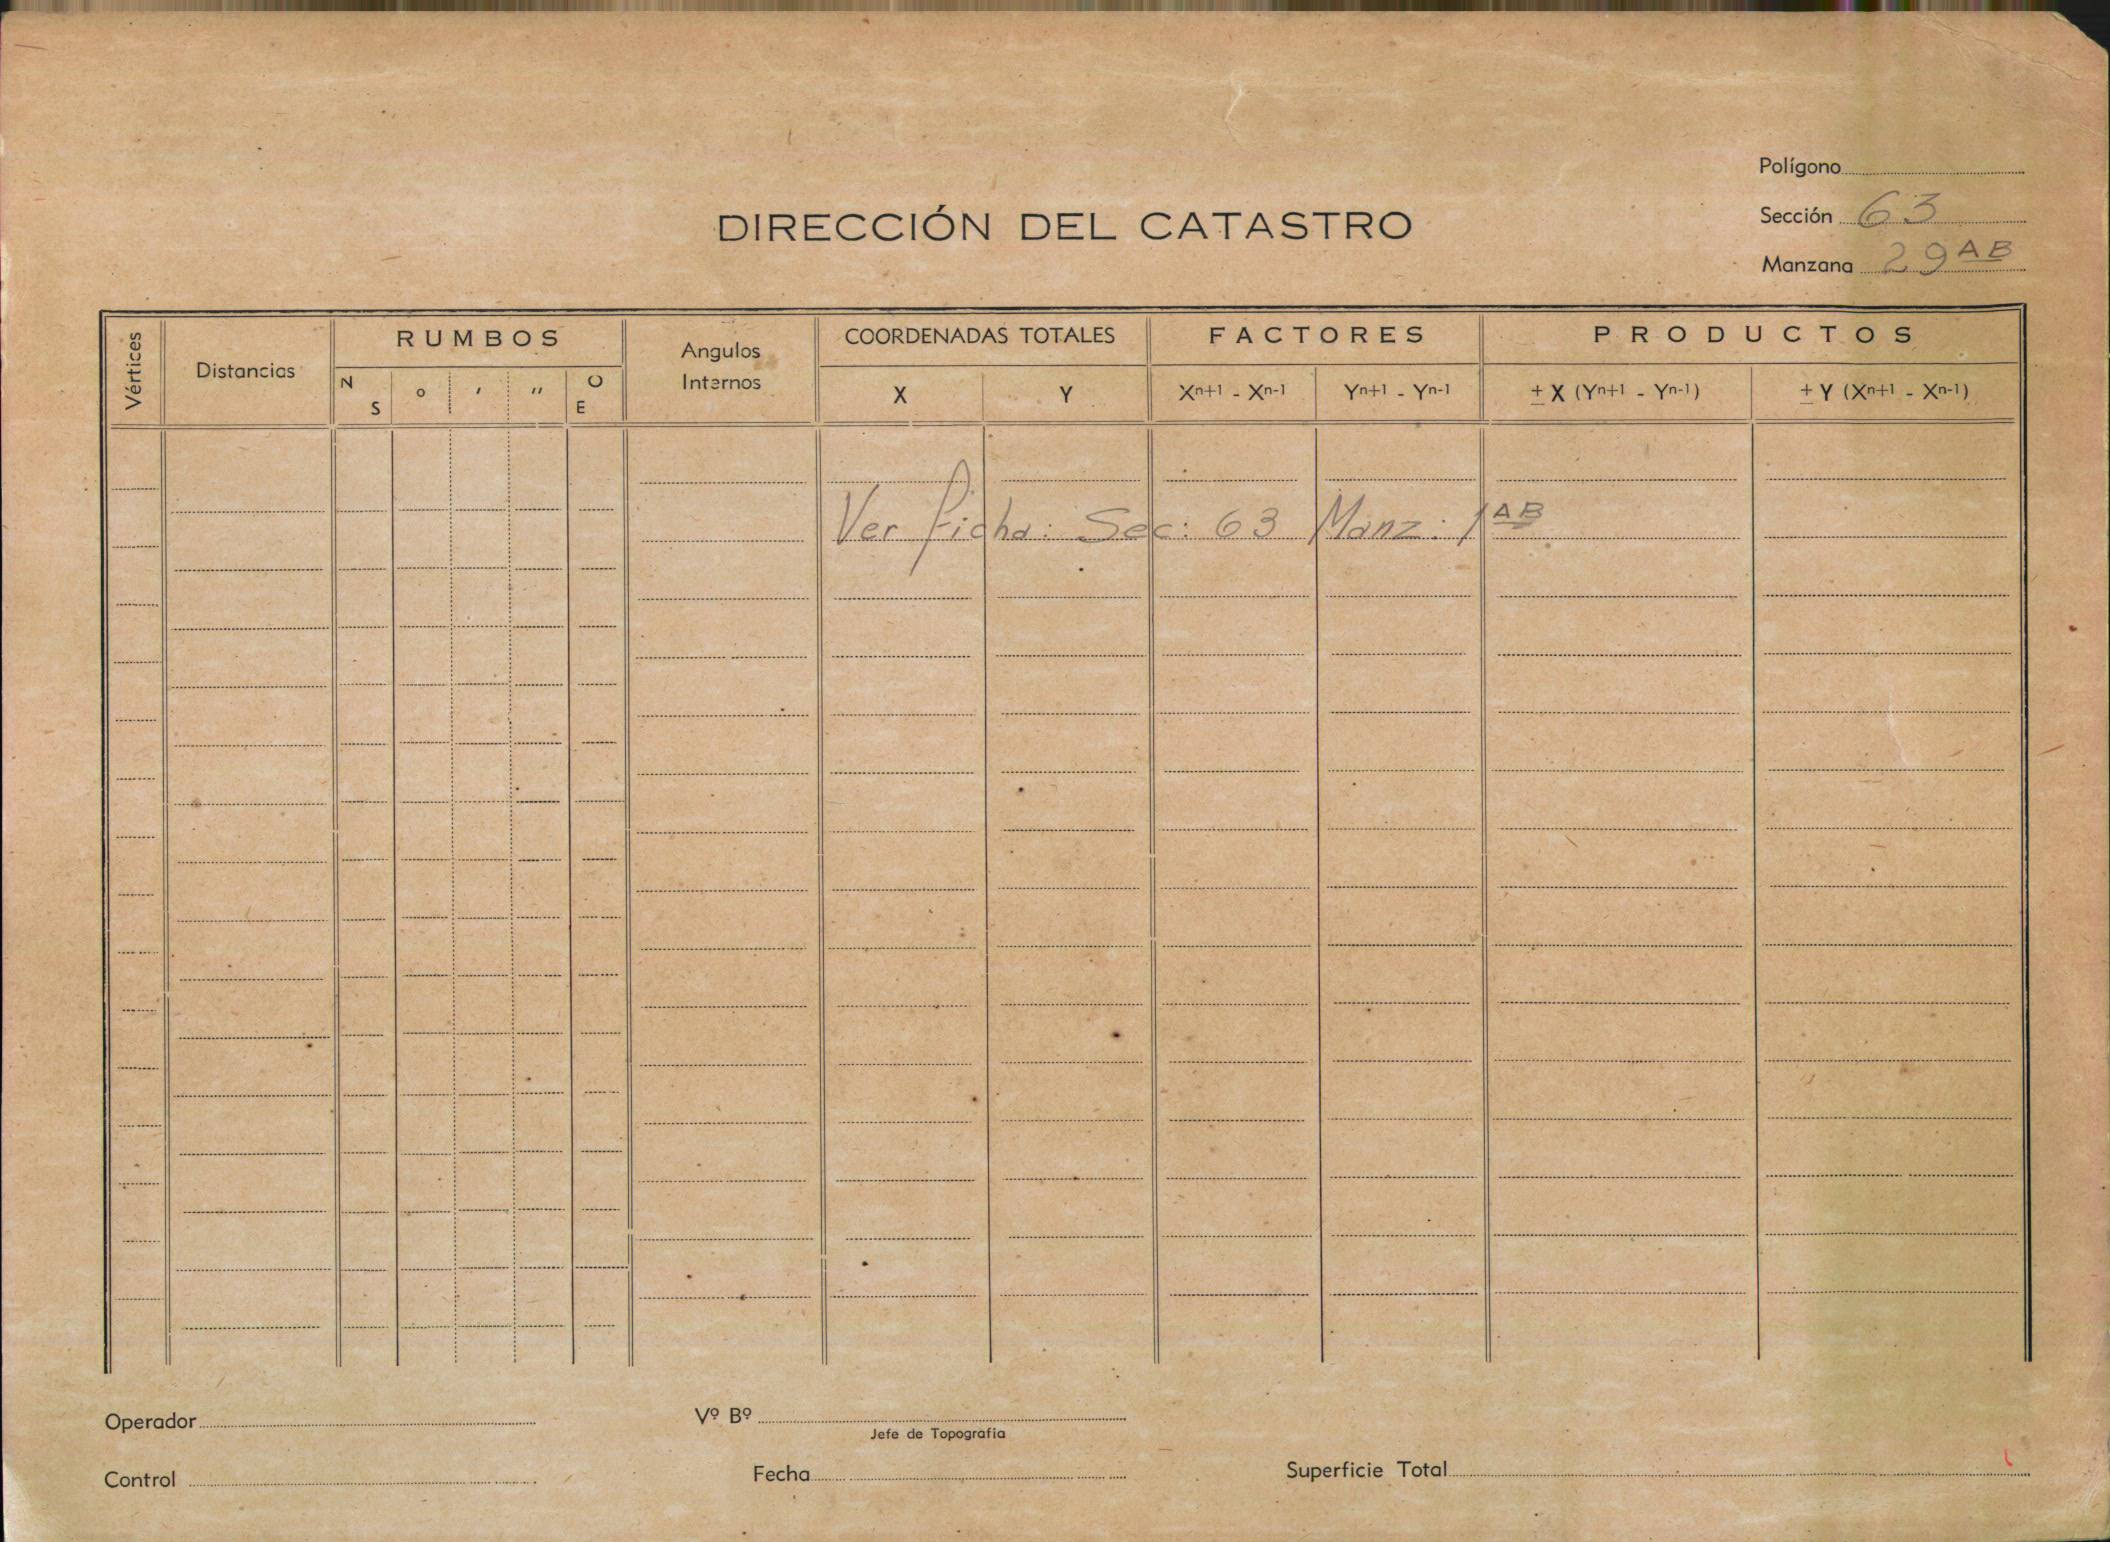 Polígono
DIRECCIÓN DEL CATASTRO
Sección 63
Manzana 29 AB
Vértices
Distancias
RUMBOS
N S
o ' "
O E
Angulos
Internos
COORDENADAS TOTALES
X Y
FACTORES
Xn+1 - Xn-1 Yn+1 - Yn-1
PRODUCTOS
± X (Yn+1 - Yn-1) ± Y (Xn+1 - Xn-1)
Ver ficha: Sec: 63 Manz: 1 AB
Operador
Vº Bº
Jefe de Topografía
Control
Fecha
Superficie Total